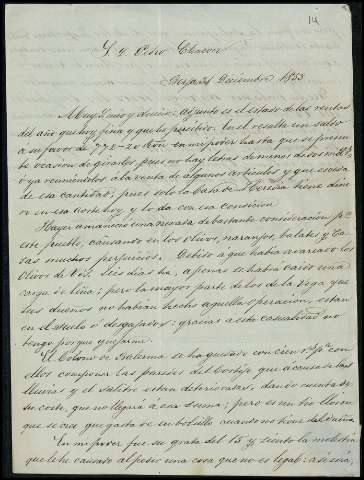 14
S. D. Pedro Chacon
Diciembre 1853
Muy Sr. mio y dueño: adjunto es el estado de las rentas
del año que hoy fina y que he percibido. En el resulta un saldo
a su favor de 772-20 Rón en mi poder hasta que se presen
te ocasion de girarlos, pues no hay letras de menos de dos mil
ó ya reuniendolos á la venta de algunos articulos y que esceda
de esa cantidad, pues solo la casa de Heredia tiene dine
ro en esa Corte hoy y lo da con esa condicion
amanecio una nevada de bastante consideracion pa
este pueblo, causando en los olivos, naranjos, balates y ca
sas muchos perjuicios. Debido a que habia acarreado los
olivos de seis dias ha, apenas se habia caido una
carga de leña; pero la mayor parte de los de la Vega que
sus dueños no habian hecho aquella operacion, estan
en el suelo ó desgajados: gracias a esta casualidad no
tengo porque quejarme.
El Colono de Balerma se ha quedado con cien rs. pa con
ellos componer las paredes del Cortijo que a causa de las
lluvias y el salitre estan deterioradas, dando cuenta de
su coste, que no llegará á esa suma: pero es un buen
que se cree que gasta de su bolsillo cuando no tiene del dueño
En mi poder fue su grata del 15 y siento la molestia
que le he causado al pedir una cosa que no es legal: asi será,